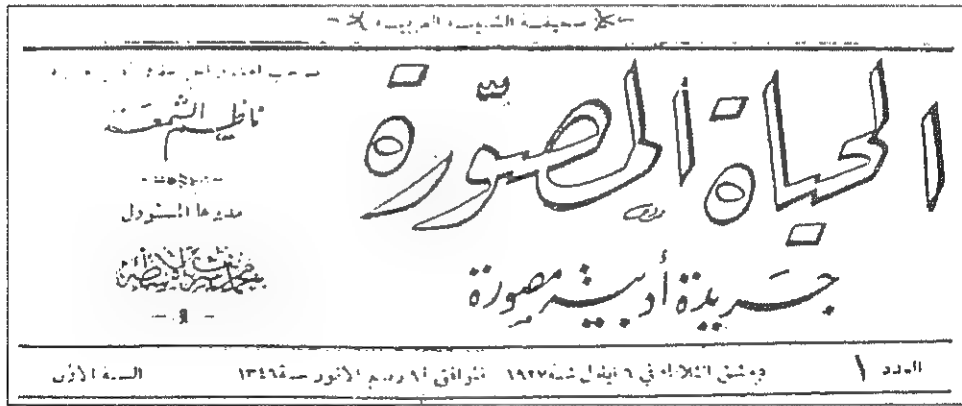 صحيفة الشبيبة العربية
الحياة المصورة
جريدة أدبية مصورة
صاحب امتيازها
ناظم الشمعة
مديرها المسئول
العدد ١
دمشق الثلاثاء في ٦ ايلول سنة ١٩٢٧ الموافق ٩ ربيع الانور سنة ١٣٤٦
السنة الاولى